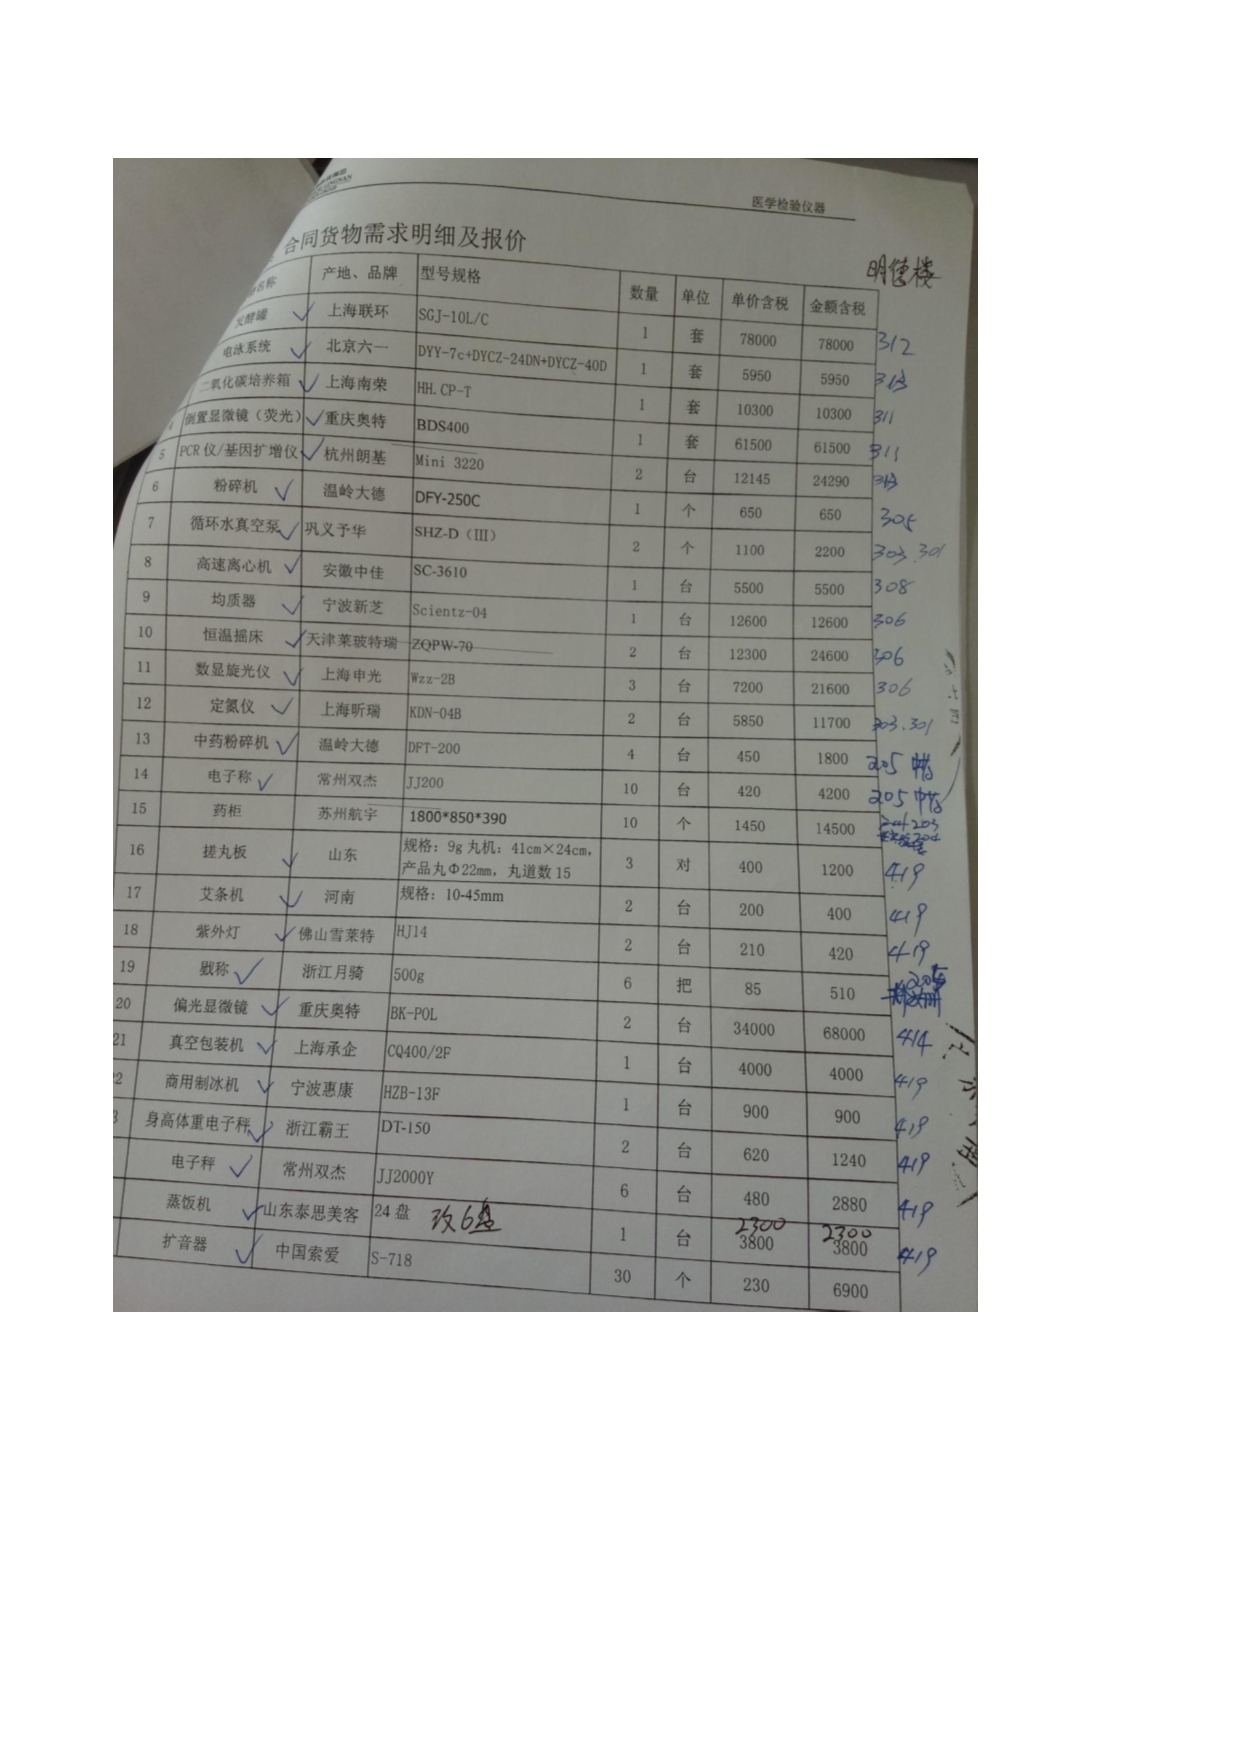 医学检验仪器
合同货物需求明细及报价
明德楼
名称 产地、品牌 型号规格 数量 单位 单价含税 金额含税
发酵罐 ✓ 上海联环 SGJ-10L/C 1 套 78000 78000 312
电泳系统 ✓ 北京六一 DYY-7c+DYCZ-24DN+DYCZ-40D 1 套 5950 5950
二氧化碳培养箱 ✓ 上海南荣 HH.CP-T 1 套 10300 10300 311
4 倒置显微镜（荧光） ✓ 重庆奥特 BDS400 1 套 61500 61500 311
5 PCR仪/基因扩增仪 ✓ 杭州朗基 Mini 3220 2 台 12145 24290
6 粉碎机 ✓ 温岭大德 DFY-250C 1 个 650 650 305
7 循环水真空泵 ✓ 巩义予华 SHZ-D（Ⅲ） 2 个 1100 2200 303.301
8 高速离心机 ✓ 安徽中佳 SC-3610 1 台 5500 5500 308
9 均质器 ✓ 宁波新芝 Scientz-04 1 台 12600 12600 306
10 恒温摇床 ✓ 天津莱玻特瑞 ZQPW-70 2 台 12300 24600 306
11 数显旋光仪 ✓ 上海申光 Wzz-2B 3 台 7200 21600 306
12 定氮仪 ✓ 上海昕瑞 KDN-04B 2 台 5850 11700 303.301
13 中药粉碎机 ✓ 温岭大德 DFT-200 4 台 450 1800 205
14 电子称 ✓ 常州双杰 JJ200 10 台 420 4200 205
15 药柜 苏州航宇 1800*850*390 10 个 1450 14500 203
16 搓丸板 ✓ 山东 规格：9g 丸机：41cm×24cm， 3 对 400 1200 419
产品丸Φ22mm，丸道数15
17 艾条机 ✓ 河南 规格：10-45mm 2 台 200 400 419
18 紫外灯 ✓ 佛山雪莱特 HJ14 2 台 210 420 419
19 戥称 ✓ 浙江月骑 500g 6 把 85 510
20 偏光显微镜 ✓ 重庆奥特 BK-POL 2 台 34000 68000 414
21 真空包装机 ✓ 上海承企 CQ400/2F 1 台 4000 4000 419
22 商用制冰机 ✓ 宁波惠康 HZB-13F 1 台 900 900 419
3 身高体重电子秤 ✓ 浙江霸王 DT-150 2 台 620 1240 419
电子秤 ✓ 常州双杰 JJ2000Y 6 台 480 2880 419
蒸饭机 ✓ 山东泰思美客 24盘 改6盘 1 台 2300 3800 2300 3800 419
扩音器 ✓ 中国索爱 S-718 30 个 230 6900